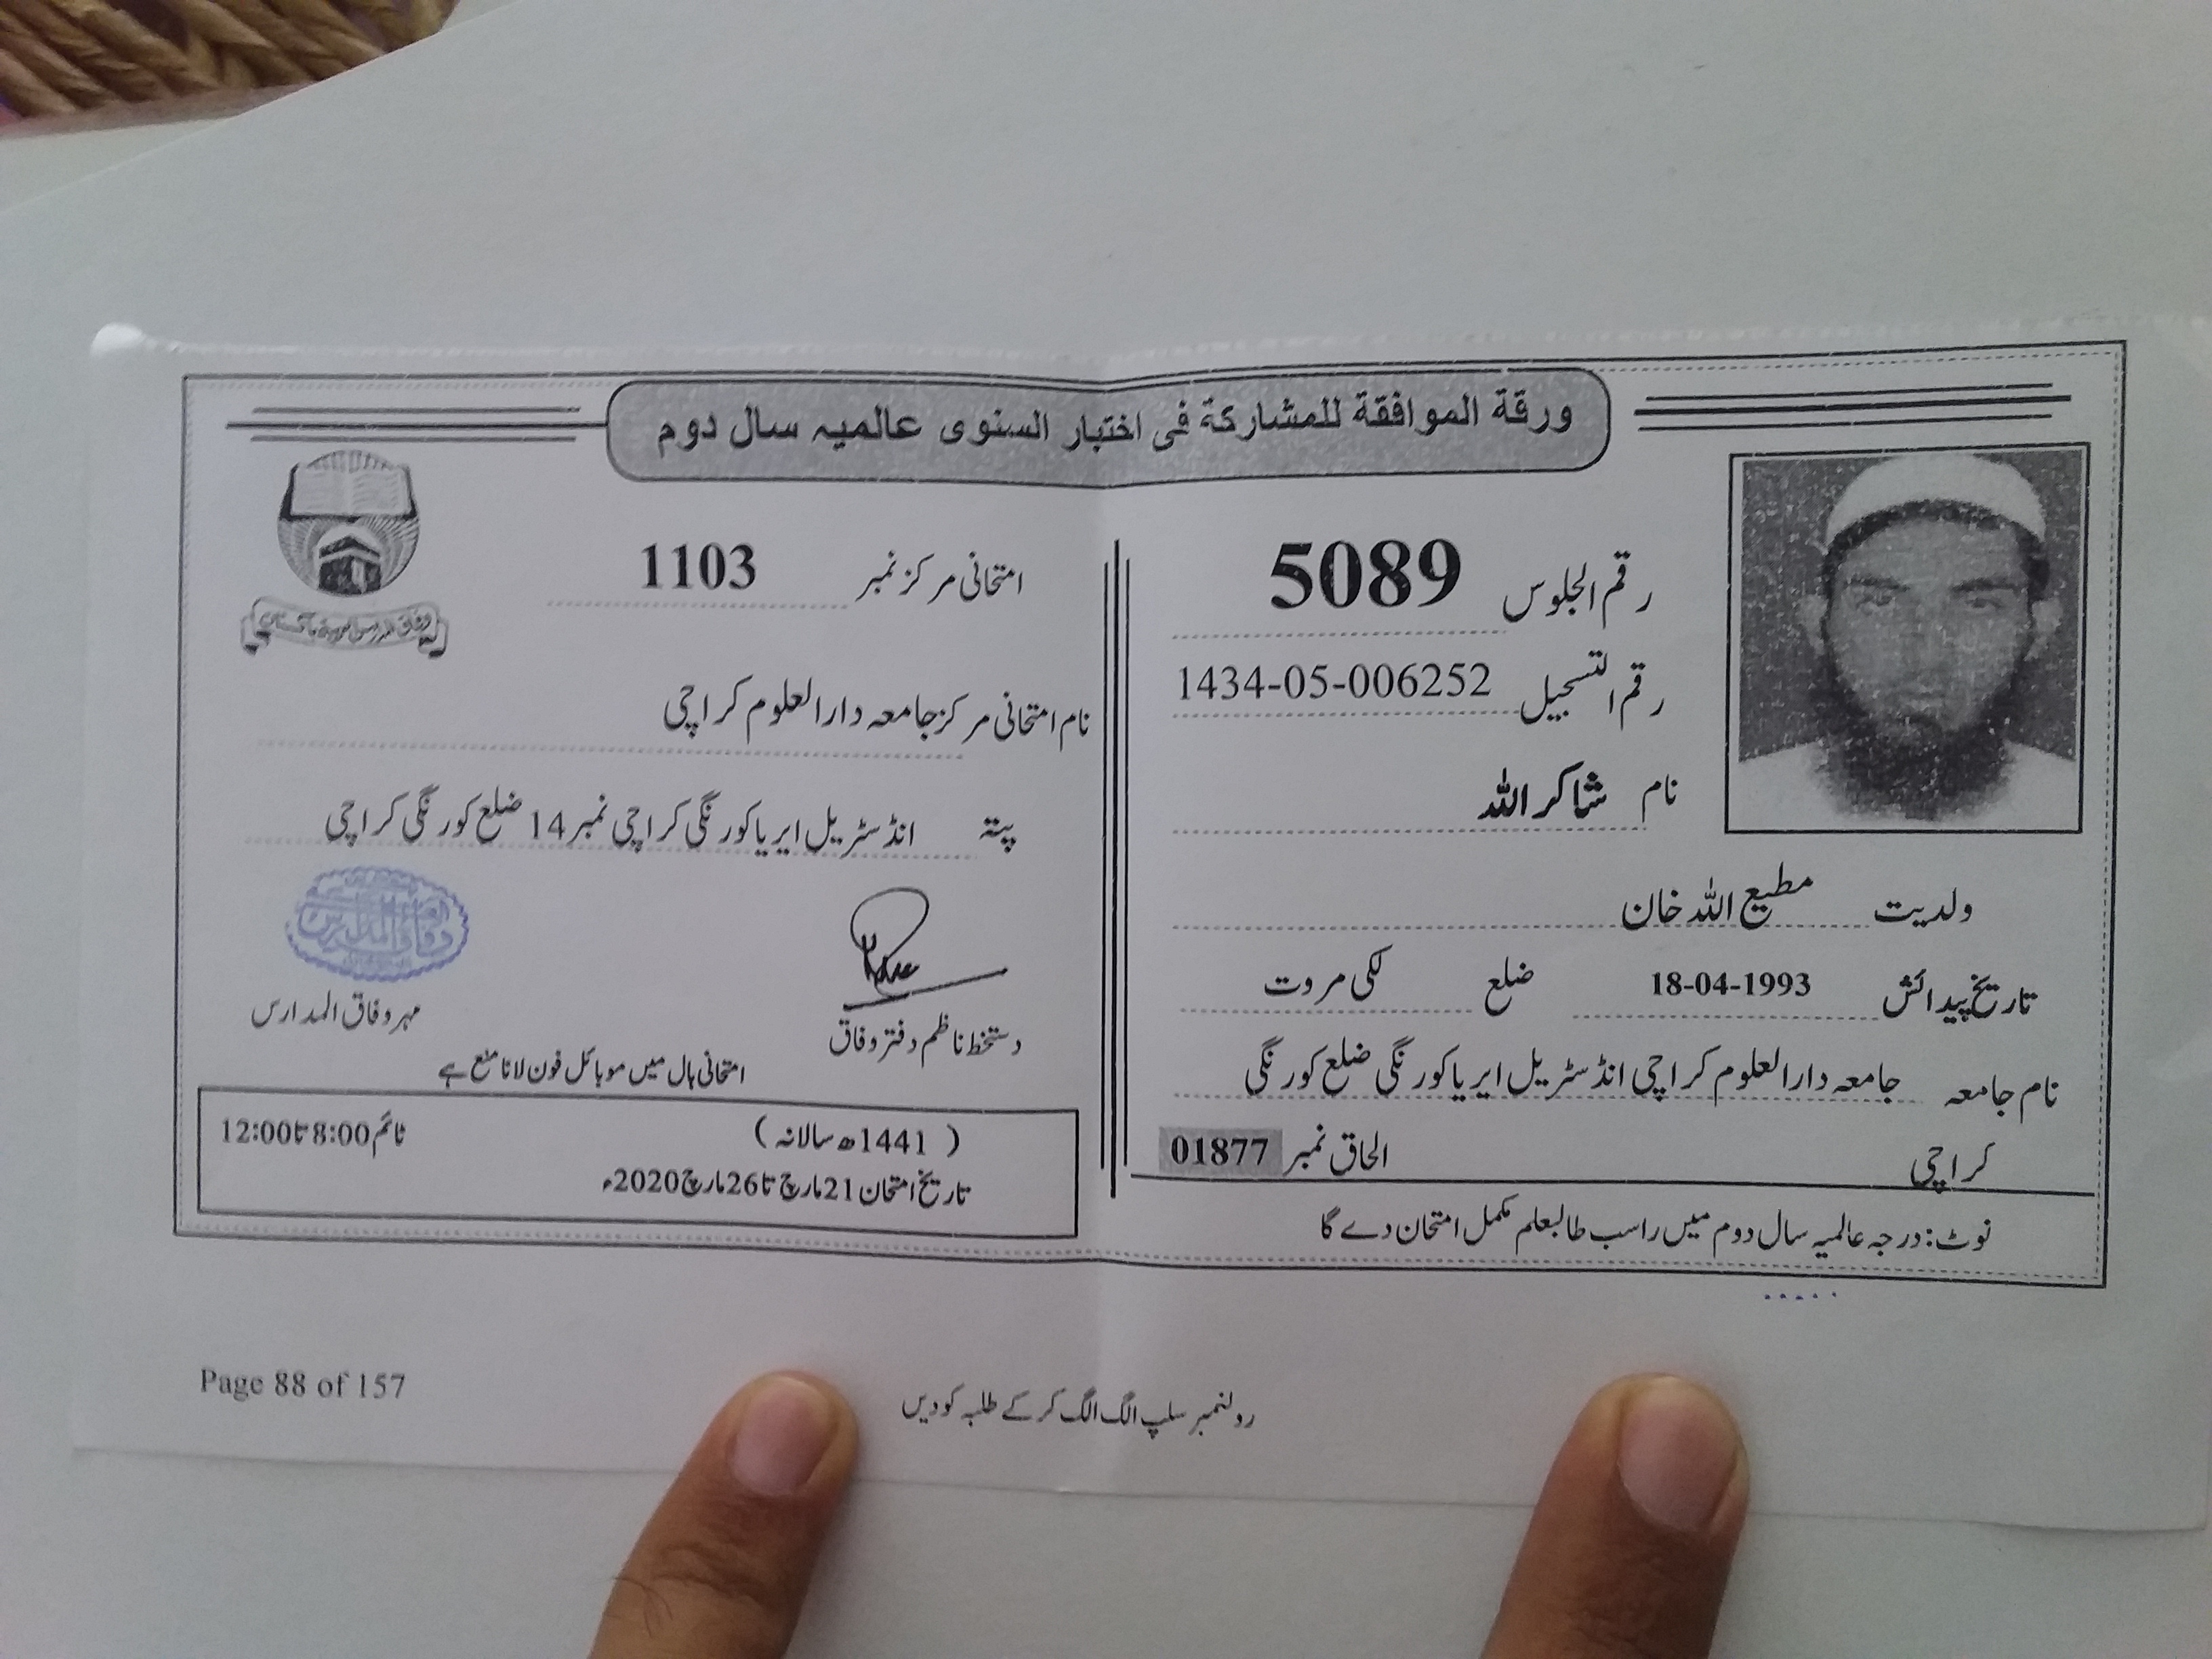 ورقة الموافقة للمشاركة فى اختبار السنوى عالميہ سال دوم
رقم الجلوس 5089
رقم التسجیل 1434-05-006252
نام شاکر اللہ
ولدیت مطیع اللہ خان
تاریخ پیدائش 18-04-1993 ضلع لکی مروت
نام جامعہ جامعہ دارالعلوم کراچی انڈسٹریل ایریا کورنگی ضلع کورنگی
کراچی الحاق نمبر 01877
نوٹ: درجہ عالمیہ سال دوم میں راسب طالبعلم مکمل امتحان دے گا
امتحانی مرکز نمبر 1103
وفاق المدارس العربیہ پاکستان
نام امتحانی مرکز جامعہ دارالعلوم کراچی
پتہ انڈسٹریل ایریا کورنگی کراچی نمبر 14 ضلع کورنگی کراچی
وفاق المدارس
دستخط ناظم دفتر وفاق
مہر وفاق المدارس
امتحانی ہال میں موبائل فون لانا منع ہے
( 1441ھ سالانہ ) ٹائم 8:00 تا 12:00
تاریخ امتحان 21 مارچ تا 26 مارچ 2020ء
رولنمبر سلپ الگ الگ کر کے طلبہ کو دیں
Page 88 of 157